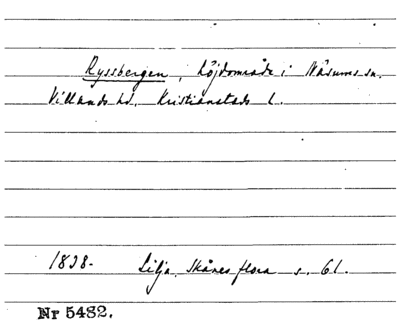 Ryssbergen, höjdområde i Näsums sn.
Villands hd. Kristianstads l.
1838. Lilja. Skånes flora s. 61.
Nr 5482.